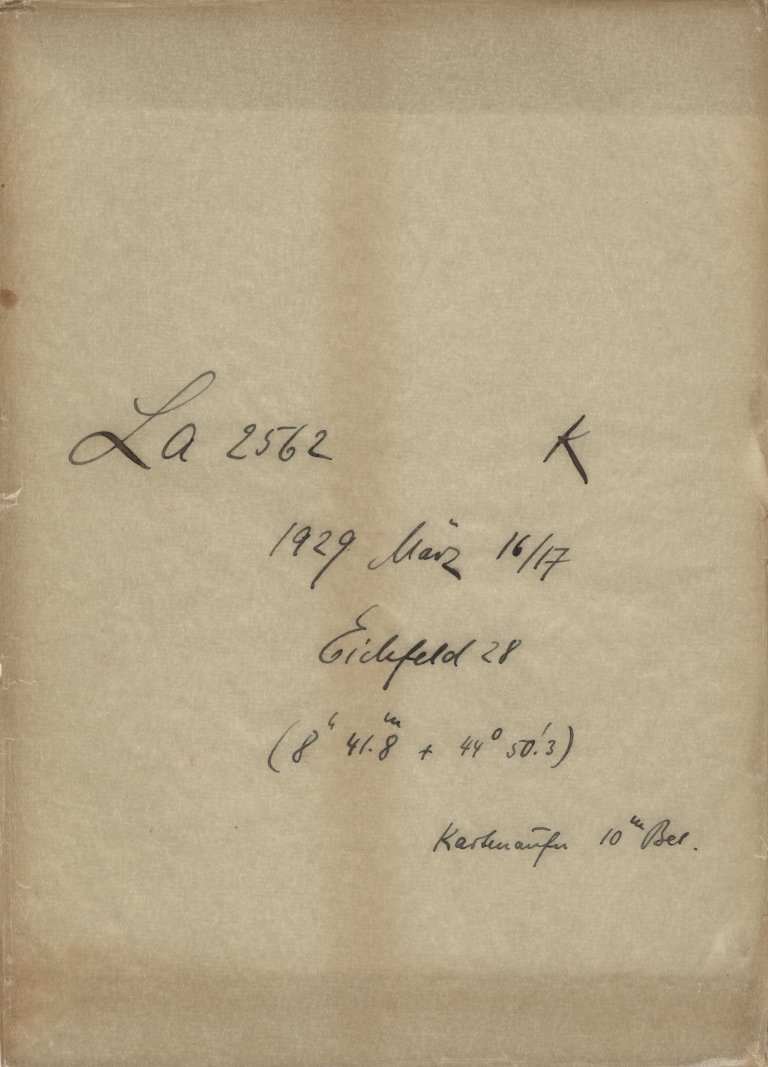 La 2562 K
1929 März 16/17
Eichfeld 28
(8ʰ 41.8ᵐ + 44° 50.′3)
Kartenaufn 10ᵐ Bel.